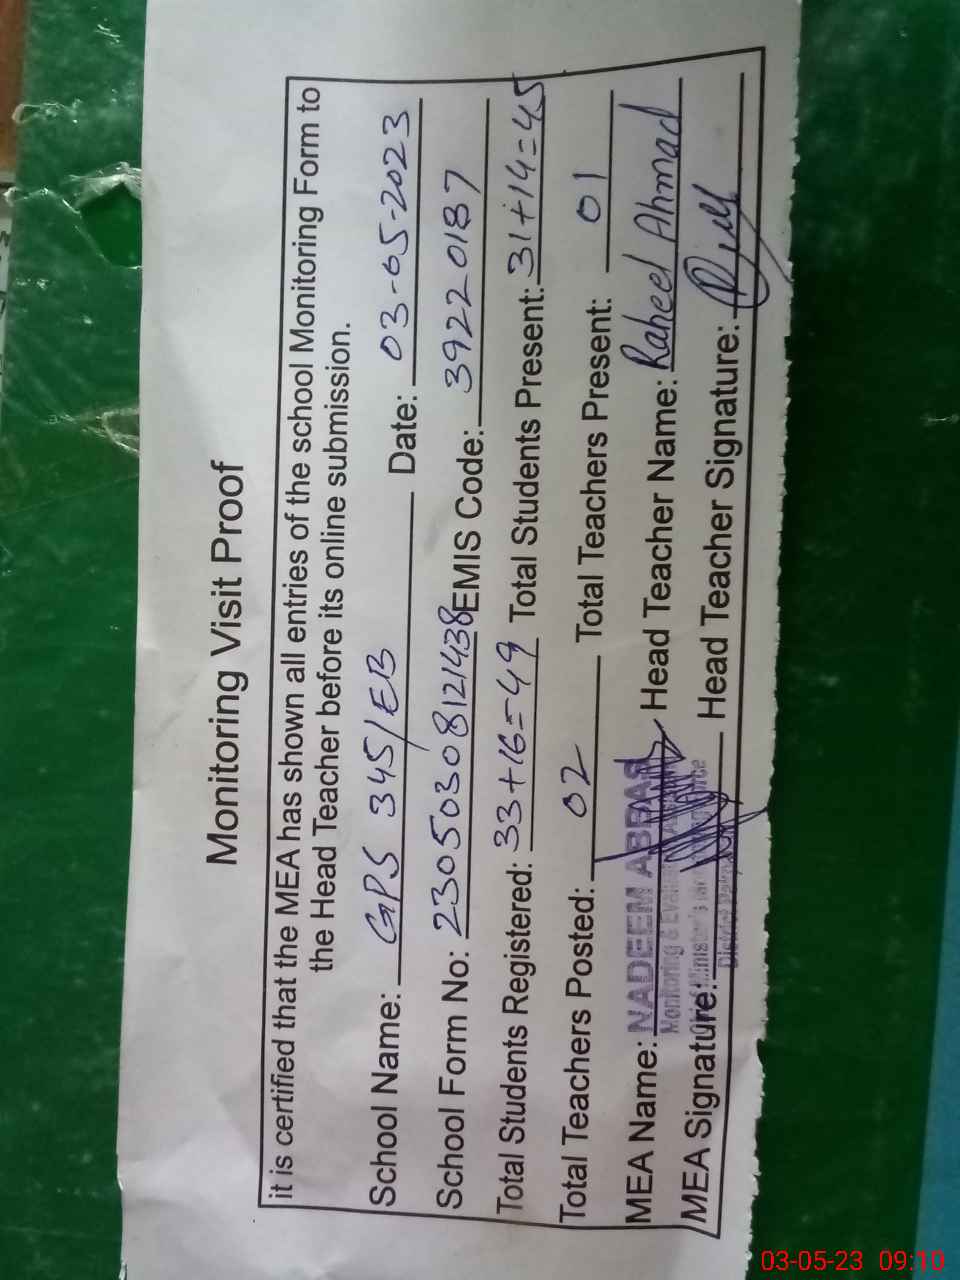 Monitoring Visit Proof
it is certified that the MEA has shown all entries of the school Monitoring Form to
the Head Teacher before its online submission.
School Name: GPS 345/EB Date: 03-05-2023
School Form No: 23050308121438 EMIS Code: 39220187
Total Students Registered: 33+16=49 Total Students Present: 31+14=45
Total Teachers Posted: 02 Total Teachers Present: 01
MEA Name: NADEEM ABBAS Head Teacher Name: Raheel Ahmad
Monitoring &
MEA Signature: Head Teacher Signature:
District
03-05-23 09:10